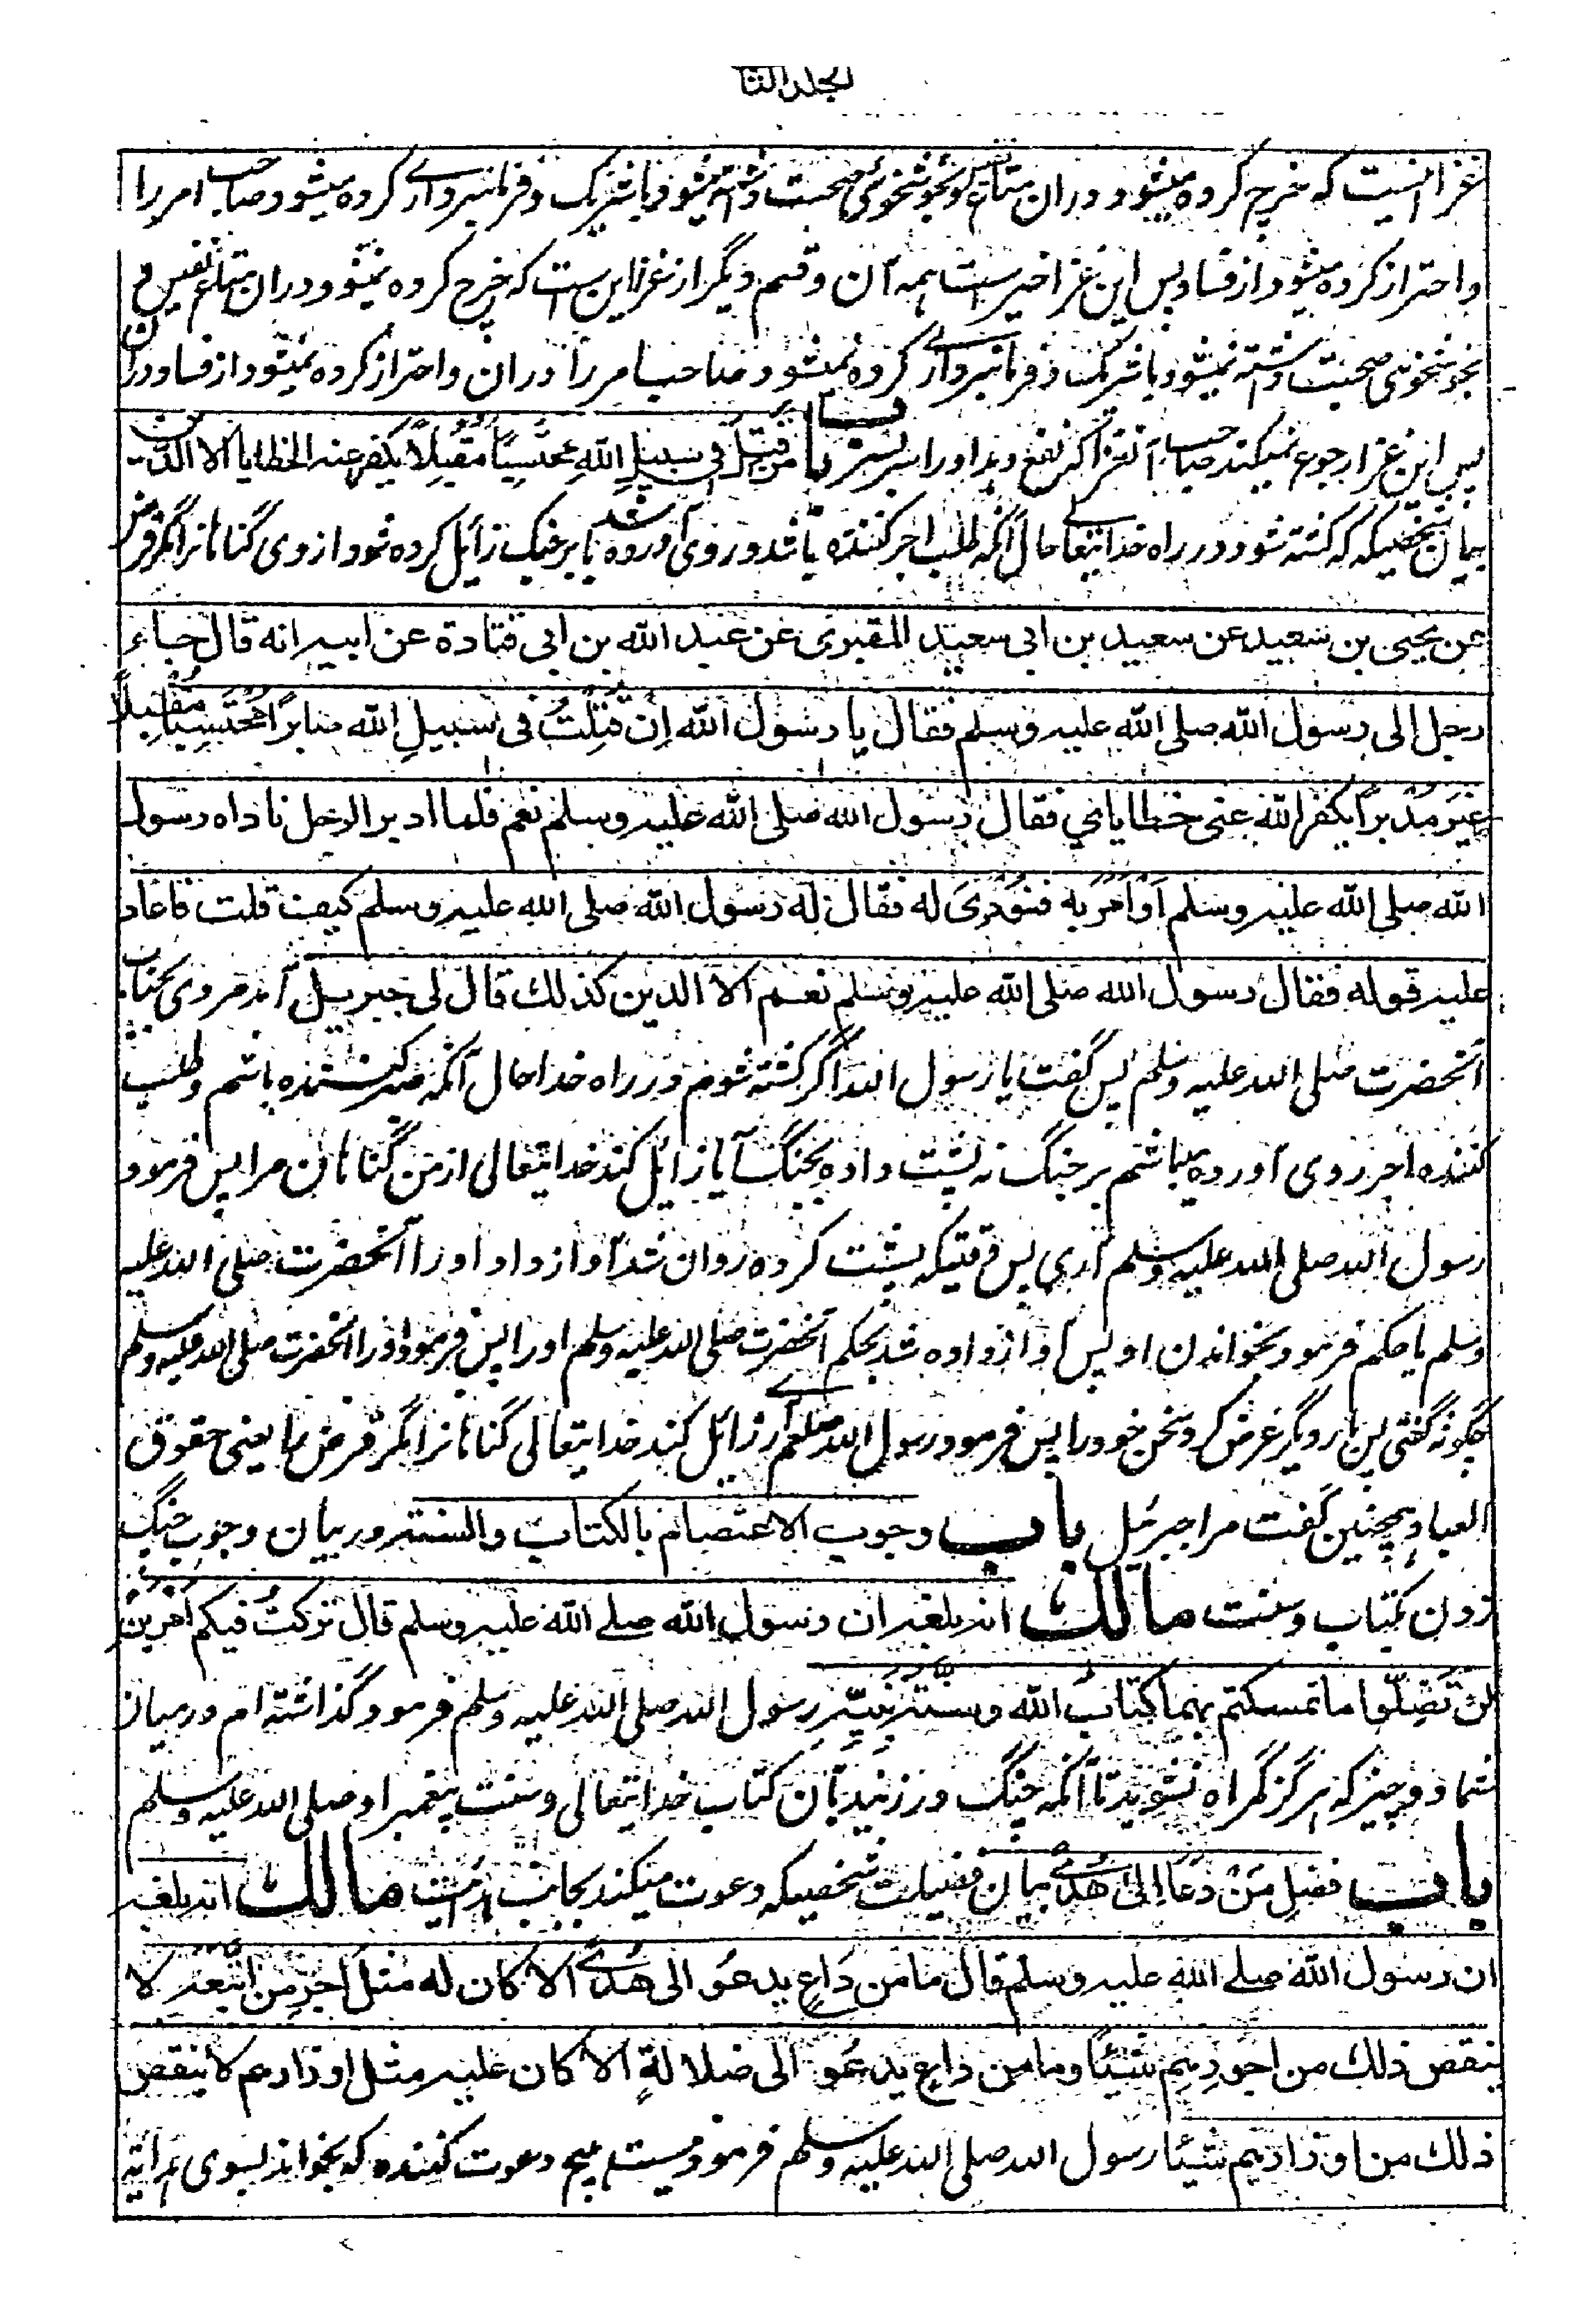 المجلد الثا
غزا اینست که خرچ کرده میشود دران متاع نفیس و بخوشخوئی صحبت داشته میشود با شریک و فرمانبرداری کرده میشود صاحب امر را
و احتراز کرده میشود از فساد پس این غزا خیر ست همه آن و قسم دیگر از غزا این ست که خرچ کرده نمیشود دران متاع نفیس و
بخوشخوئی صحبت داشته نمیشود با شریک و فرمانبرداری کرده نمیشود صاحب امر را دران و احتراز کرده نمیشود از فساد دران
پس این غزا رجوع نمیکند صاحب آنقدر که نفع دهد او را سر بسر باب من قُتِلَ فی سبیل الله مُحْتَسِبًا مُقْبِلًا یکفر عنه الخطایا الا الدَّین
بیان شخصیکه کشته شود در راه خدایتعالی حال آنکه طلب اجر کننده باشد و روی آورده باشد بر جنگ زائل کرده شود از وی گناهان مگر قرض
عن یحیی بن سعید عن سعید بن ابی سعید المقبری عن عبد الله بن ابی قتادة عن ابیه انه قال جاء
رجل الی رسول الله صلی الله علیه وسلم فقال یا رسول الله اِن قُتِلْتُ فی سبیلِ الله صابرًا مُحْتَسِبًا مُقْبِلًا
غیرَ مُدْبرٍ أیکفر الله عنی خطایای فقال رسول الله صلی الله علیه وسلم نعم فلما ادبر الرجل ناداه رسول
الله صلی الله علیه وسلم اَوْ اَمَرَ به فنُوْدِیَ له فقال له رسول الله صلی الله علیه وسلم کیف قلت فاعاد
علیه قوله فقال رسول الله صلی الله علیه وسلم نعم الا الدین کذلك قال لی جبریل آمد مردی بجناب
آنحضرت صلی الله علیه وسلم پس گفت یا رسول الله اگر کشته شوم در راه خدا حال آنکه صبر کننده باشم و طلب
کننده اجر روی آورده میباشم بر جنگ نه پشت داده بجنگ آیا زائل کند خدایتعالی از من گناهان مرا پس فرمود
رسول الله صلی الله علیه وسلم آری پس وقتیکه پشت کرده روان شد آواز داد او را آنحضرت صلی الله علیه
وسلم یا حکم فرمود بخواندن او پس آواز داده شد بحکم آنحضرت صلی الله علیه وسلم او را پس فرمود او را آنحضرت صلی الله علیه وسلم
چگونه گفتی پس بار دیگر عرض کرد سخن خود را پس فرمود رسول الله صلعم آری زائل کند خدایتعالی گناهان را مگر قرض را یعنی حقوق
العباد همچنین گفت مرا جبرئیل باب وجوب الاعتصام بالکتاب والسنة در بیان وجوب چنگ
زدن بکتاب و سنت مالك انه بلغه ان رسول الله صلے الله علیه وسلم قال ترکتُ فیکم اَمْرَیْنِ
لن تَضِلّوا ما تمسکتم بهما کتابَ الله وسنةَ نبیّه رسول الله صلی الله علیه وسلم فرمود گذاشته ام در میان
شما دو چیز که هرگز گمراه نشوید تا آنکه چنگ ورزنید بآن کتاب خدایتعالی و سنت پیغمبر او صلی الله علیه وسلم
باب فضل مَنْ دَعَا اِلیٰ هُدًی بیان فضیلت شخصیکه دعوت میکند بجانب هدایت مالك انه بلغه
ان رسول الله صلے الله علیه وسلم قال ما من دَاعٍ یدعو الی هُدًی الا کان له مثلَ اَجْرِ من اتَّبَعَه لا
ینقص ذلك من اجورهم شیئًا وما من داعٍ یدعو الی ضلالةٍ الا کان علیه مثل اوزارهم لا ینقص
ذلك من اوزارهم شیئًا رسول الله صلی الله علیه وسلم فرمود نیست هیچ دعوت کننده که بخواند بسوی هدایة